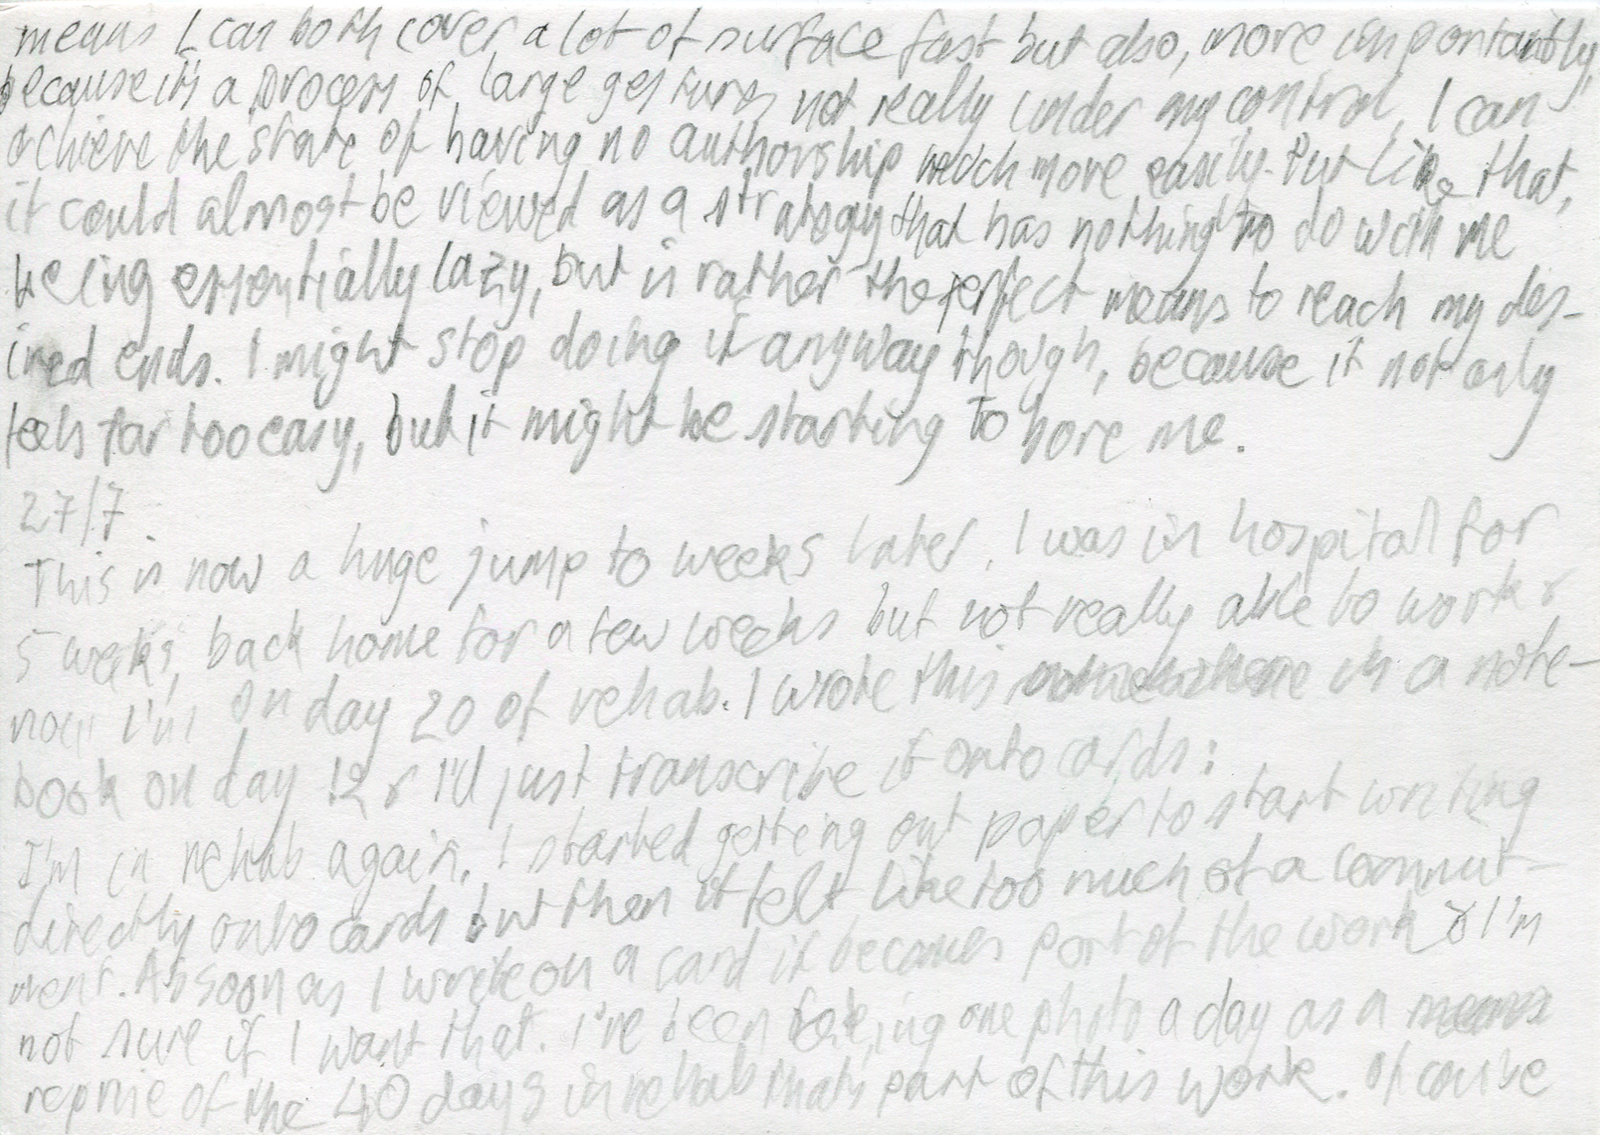 means I can both cover a lot of surface fast but also, more importantly,
because it's a process of large gestures not really under my control, I can
achieve the state of having no authorship much more easily. Put like that,
it could almost be viewed as a strategy that has nothing to do with me
being essentially lazy, but is rather the perfect means to reach my des-
ired ends. I might stop doing it anyway though, because it not only
feels far too easy, but it might be starting to bore me.
27/7
This is now a huge jump to weeks later. I was in hospital for
5 weeks, back home for a few weeks but not really able to work &
now I'm on day 20 of rehab. I wrote this in a note-
book on day 12 & I'll just transcribe it onto cards:
I'm in rehab again. I started getting out paper to start writing
directly onto cards but then it felt like too much of a commit-
ment. As soon as I write on a card it becomes part of the work & I'm
not sure if I want that. I've been taking one photo a day as a
reprise of the 40 days in rehab that's part of this work. Of course